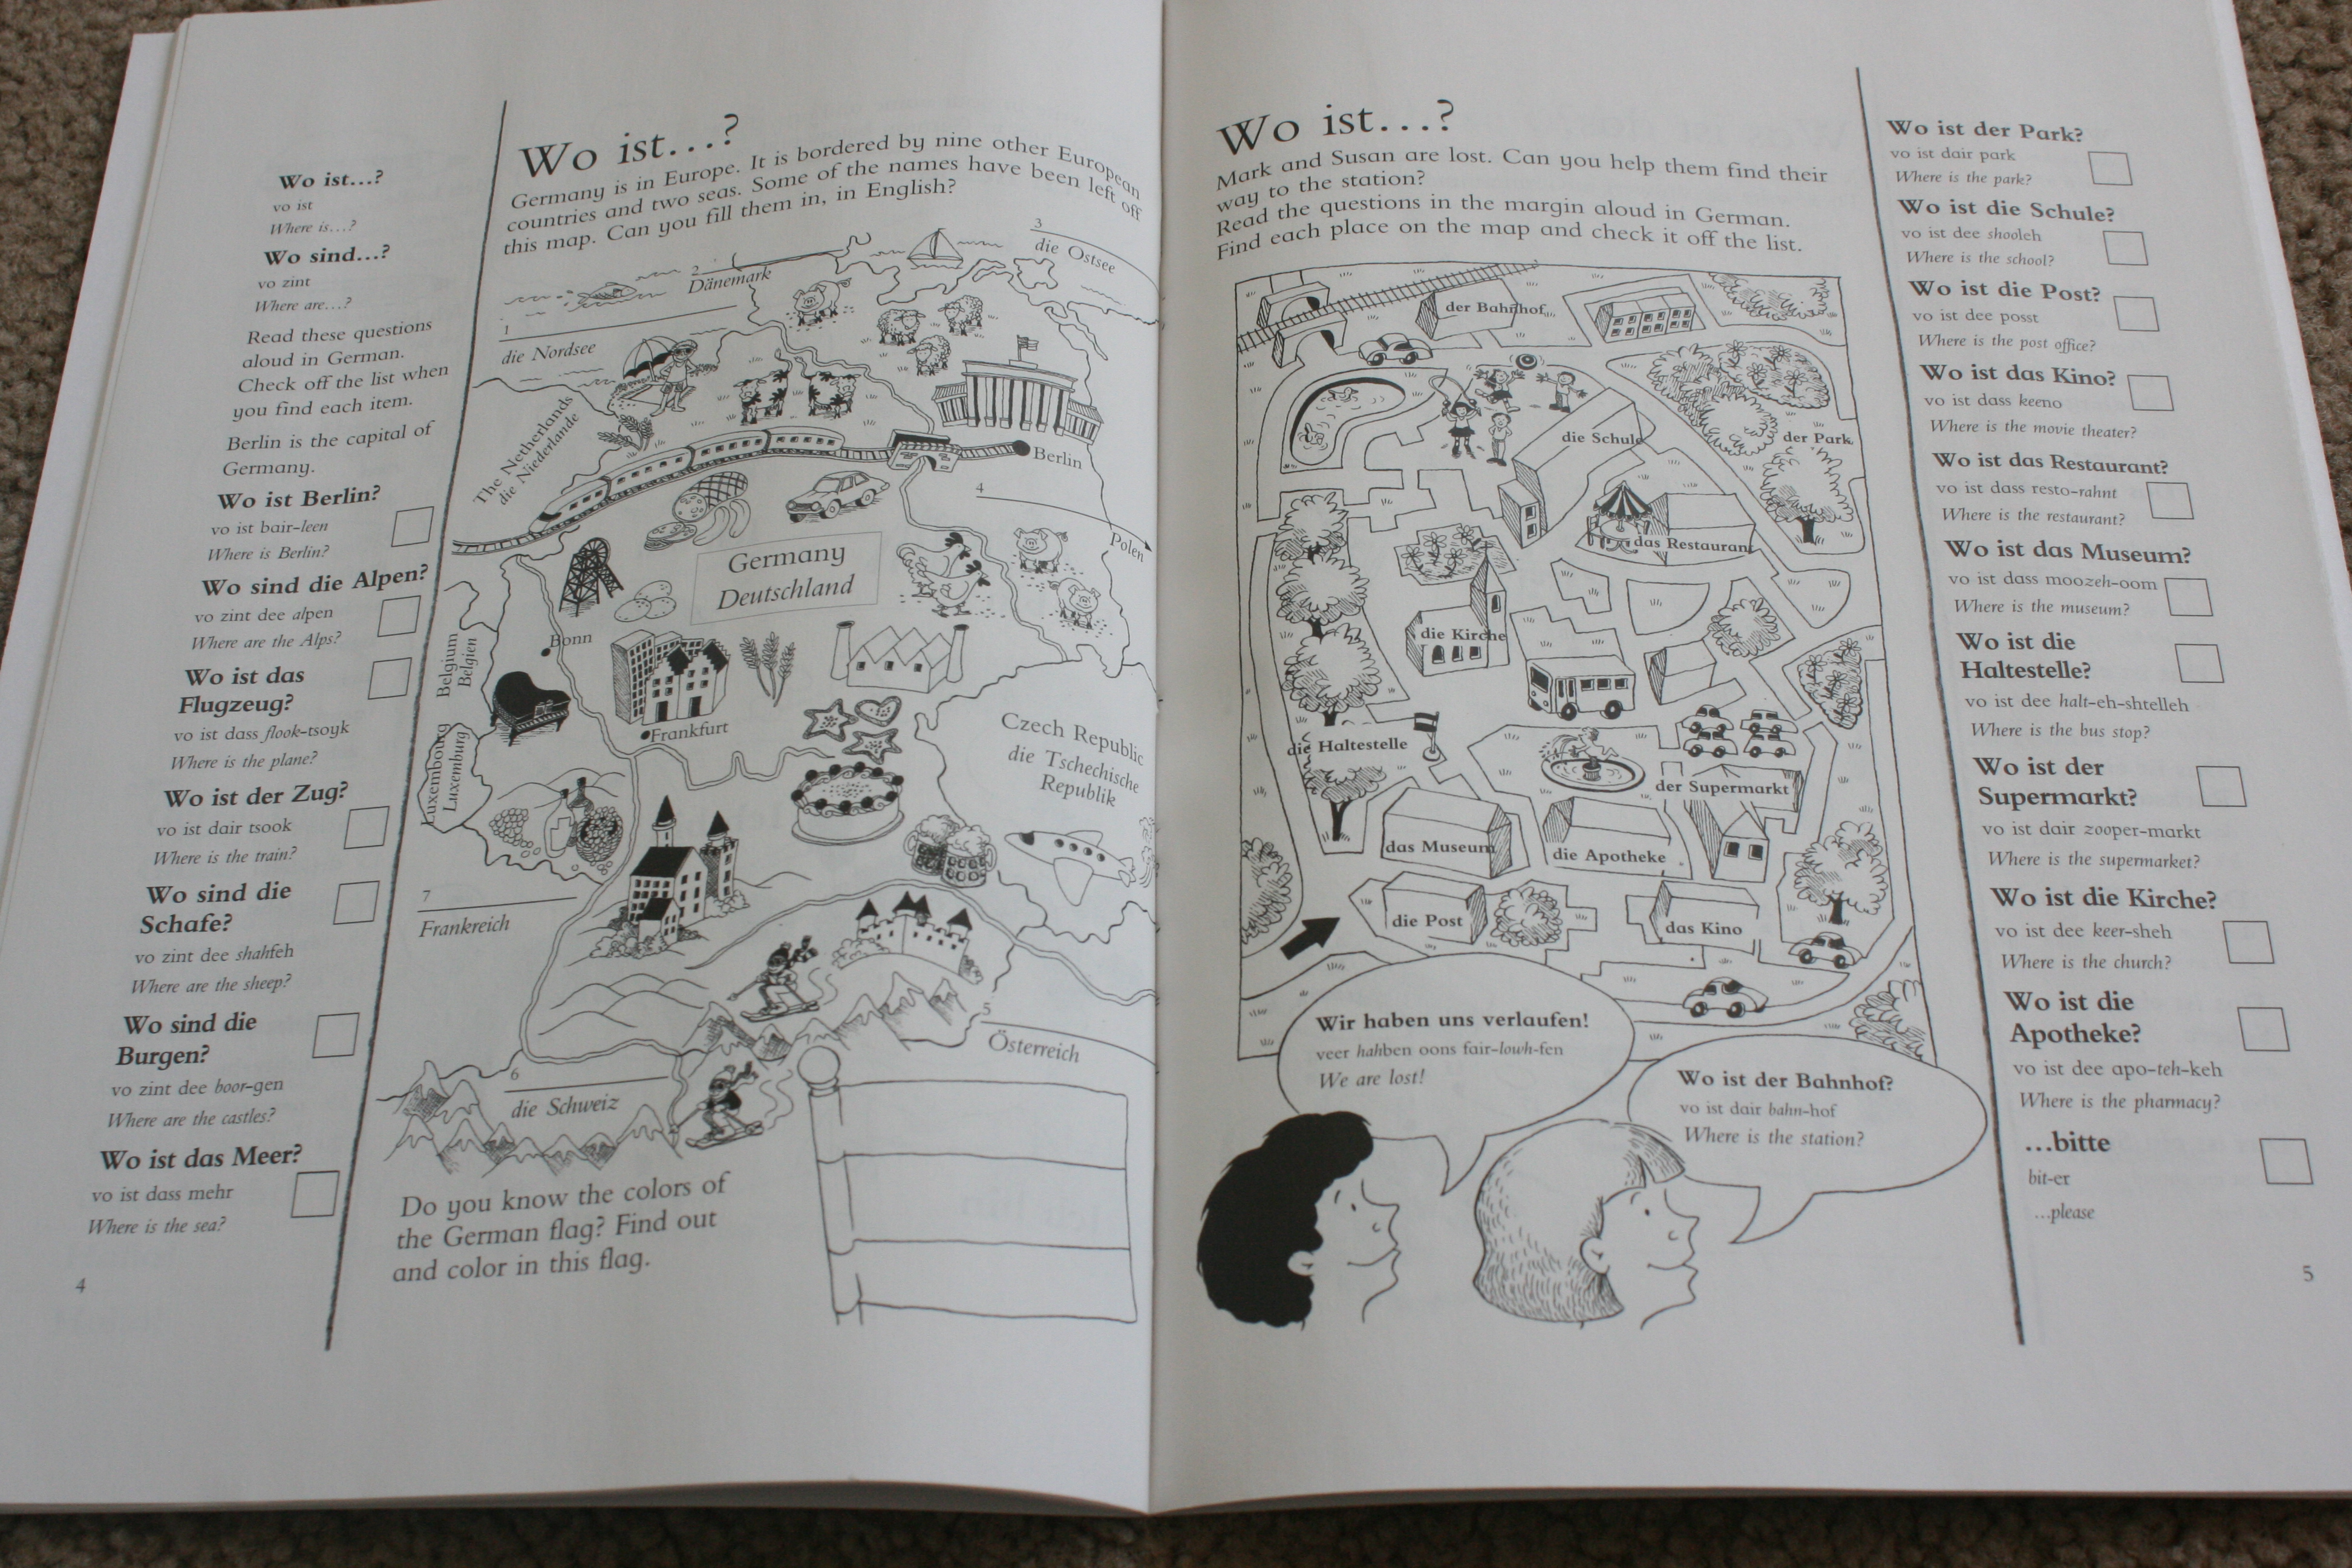 Wo ist...?
vo ist
Where is...?
Wo sind...?
vo zint
Where are...?
Read these questions
aloud in German.
Check off the list when
you find each item.
Berlin is the capital of
Germany.
Wo ist Berlin?
vo ist bair-leen
Where is Berlin?
Wo sind die Alpen?
vo zint dee alpen
Where are the Alps?
Wo ist das
Flugzeug?
vo ist dass flook-tsoyk
Where is the plane?
Wo ist der Zug?
vo ist dair tsook
Where is the train?
Wo sind die
Schafe?
vo zint dee shahfeh
Where are the sheep?
Wo sind die
Burgen?
vo zint dee boor-gen
Where are the castles?
Wo ist das Meer?
vo ist dass mehr
Where is the sea?
4
Wo ist...?
Germany is in Europe. It is bordered by nine other European
countries and two seas. Some of the names have been left off
this map. Can you fill them in, in English?
3
die Ostsee
2
Dänemark
1
die Nordsee
The Netherlands
die Niederlande
Berlin
4
Polen
Germany
Deutschland
Bonn
Belgium
Belgien
Frankfurt
Luxembourg
Luxemburg
Czech Republic
die Tschechische
Republik
7
Frankreich
5
Österreich
6
die Schweiz
Do you know the colors of
the German flag? Find out
and color in this flag.
Wo ist...?
Mark and Susan are lost. Can you help them find their
way to the station?
Read the questions in the margin aloud in German.
Find each place on the map and check it off the list.
der Bahnhof
die Schule
der Park
das Restaurant
die Kirche
die Haltestelle
der Supermarkt
das Museum
die Apotheke
die Post
das Kino
Wir haben uns verlaufen!
veer hahben oons fair-lowh-fen
We are lost!
Wo ist der Bahnhof?
vo ist dair bahn-hof
Where is the station?
Wo ist der Park?
vo ist dair park
Where is the park?
Wo ist die Schule?
vo ist dee shooleh
Where is the school?
Wo ist die Post?
vo ist dee posst
Where is the post office?
Wo ist das Kino?
vo ist dass keeno
Where is the movie theater?
Wo ist das Restaurant?
vo ist dass resto-rahnt
Where is the restaurant?
Wo ist das Museum?
vo ist dass moozeh-oom
Where is the museum?
Wo ist die
Haltestelle?
vo ist dee halt-eh-shtelleh
Where is the bus stop?
Wo ist der
Supermarkt?
vo ist dair zooper-markt
Where is the supermarket?
Wo ist die Kirche?
vo ist dee keer-sheh
Where is the church?
Wo ist die
Apotheke?
vo ist dee apo-teh-keh
Where is the pharmacy?
...bitte
bit-er
...please
5